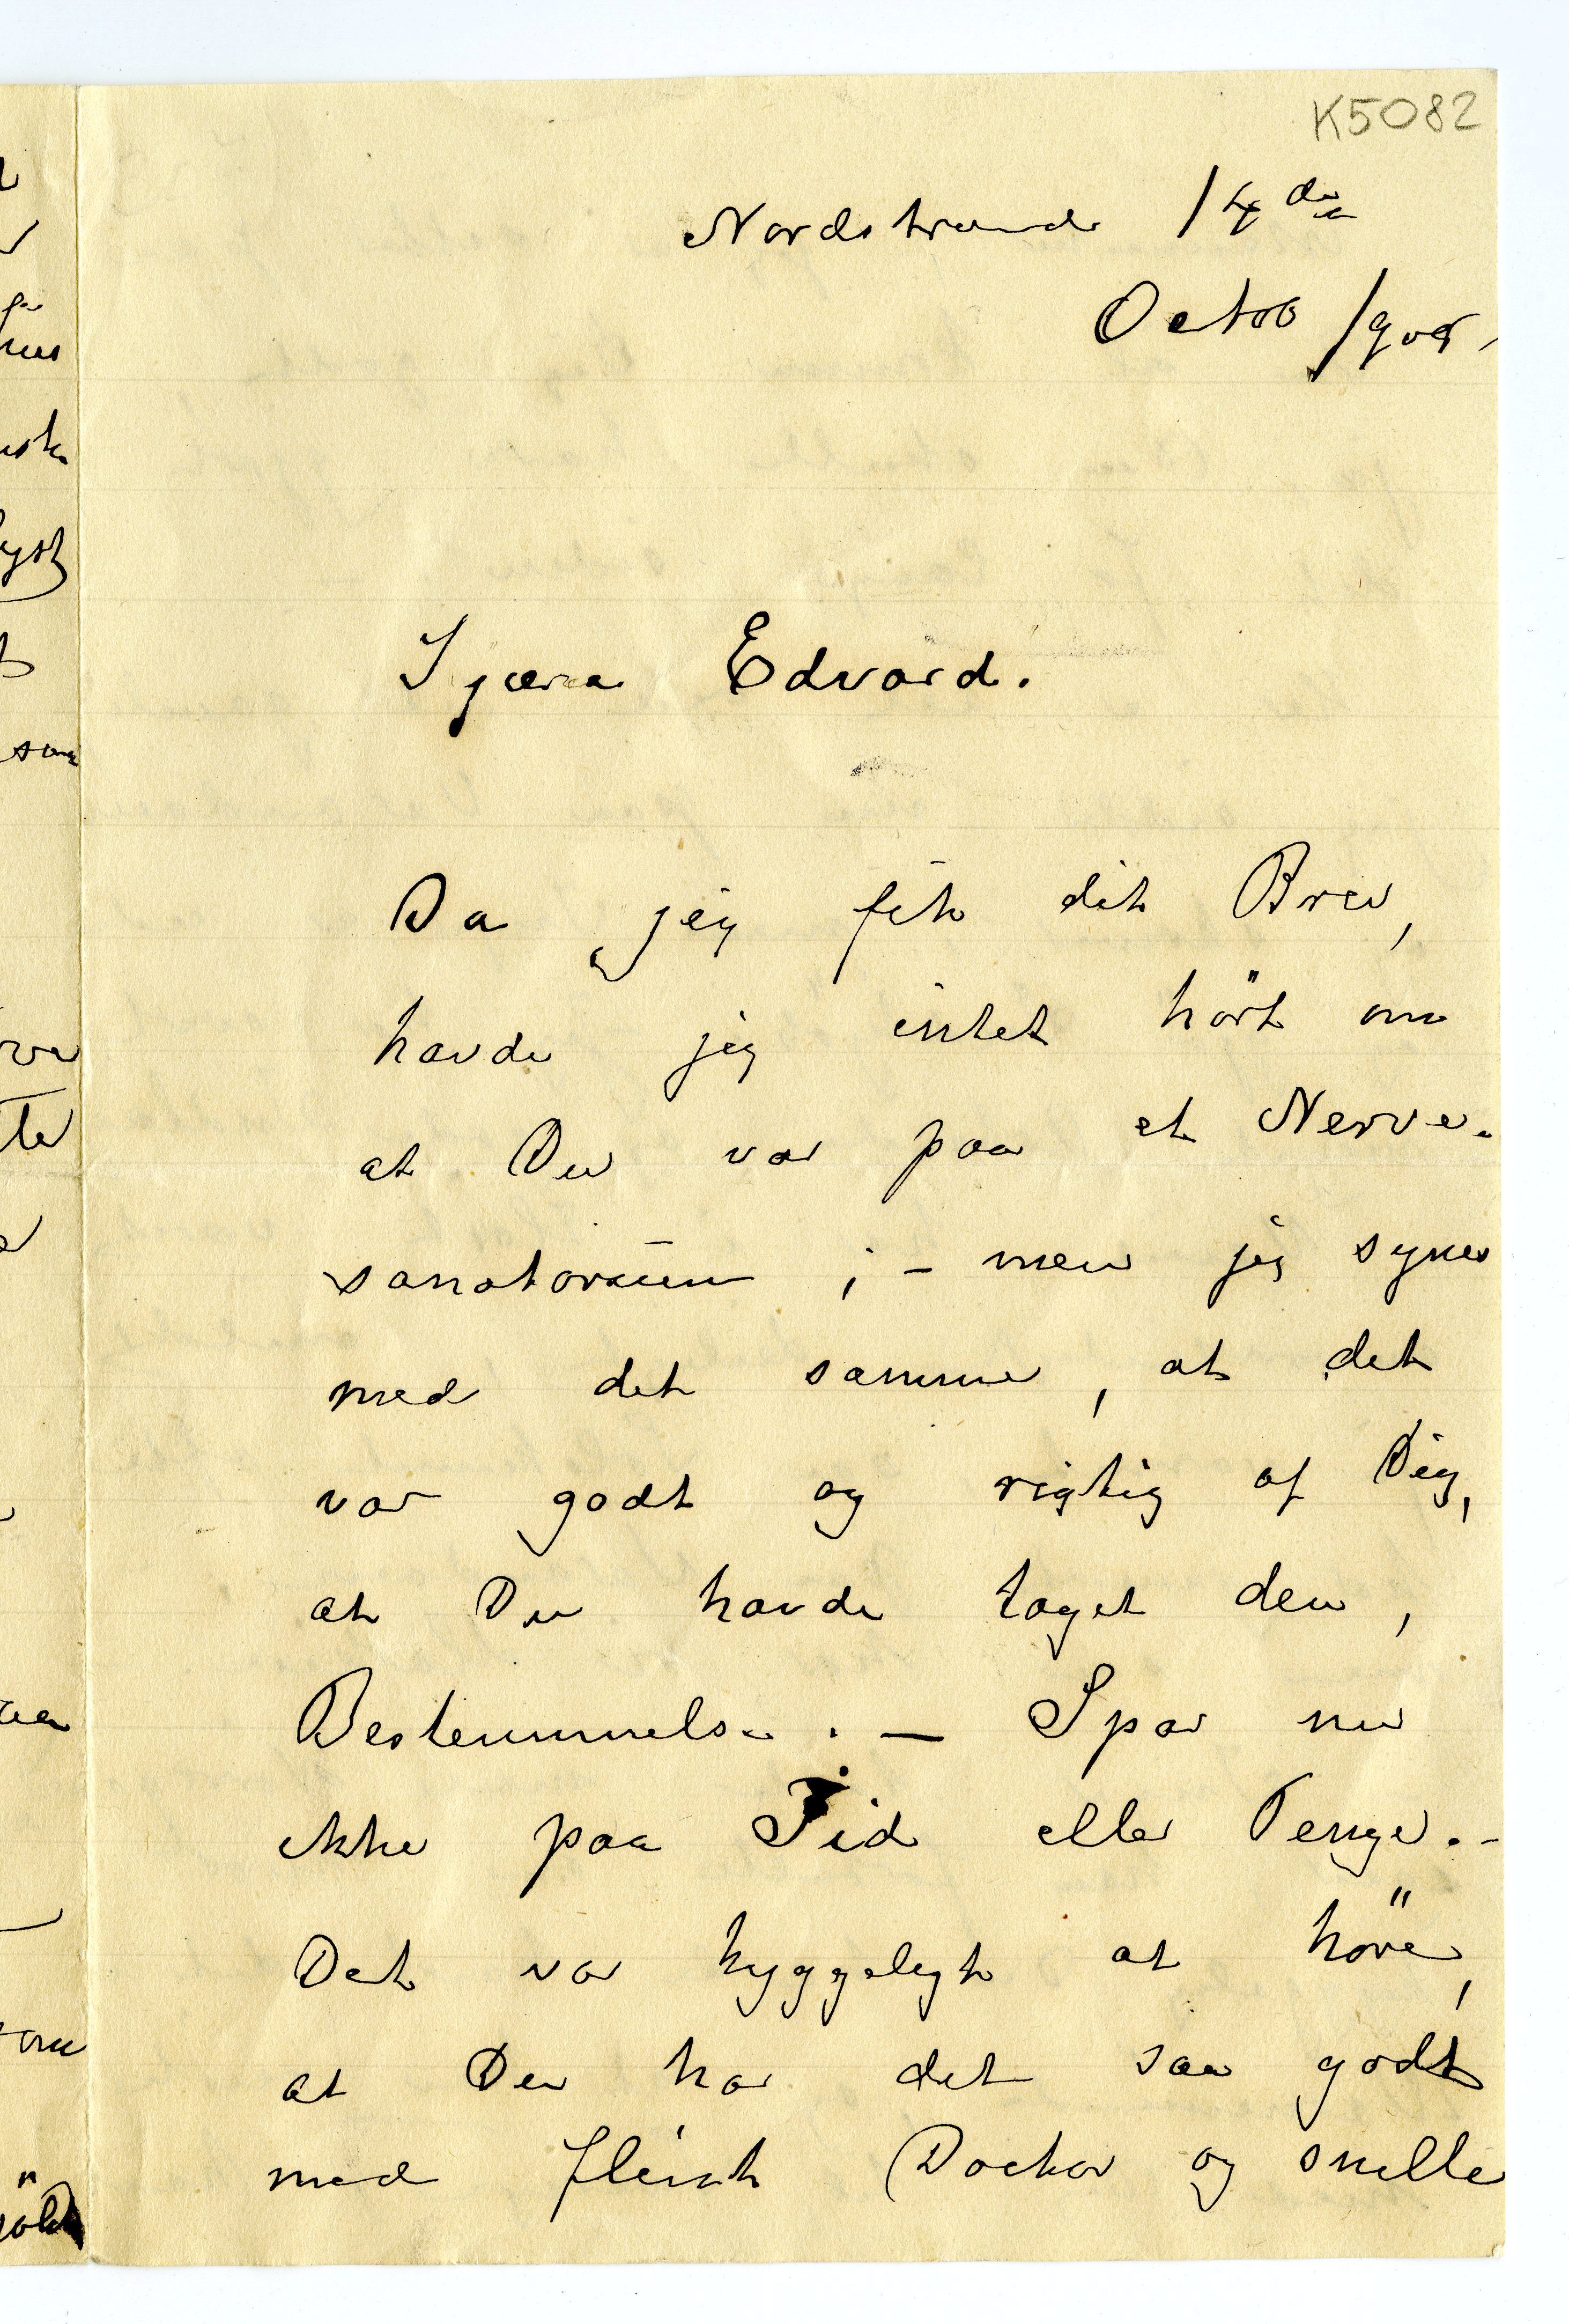 K5082
Nordstrand 14de
Octob 1908.
Kjære Edvard.
Da jeg fik dit Brev,
havde jeg intet hört om
at Du var paa et Nerve-
sanatorium ; - men jeg synes
med det samme, at det
var godt og rigtig af Dig,
at Du havde taget den,
Bestemmelse. — Spar nu
ikke paa Tid eller Penge. -
Det var hyggeligt at höre,
at Du har det saa godt
med flink Doctor og snille